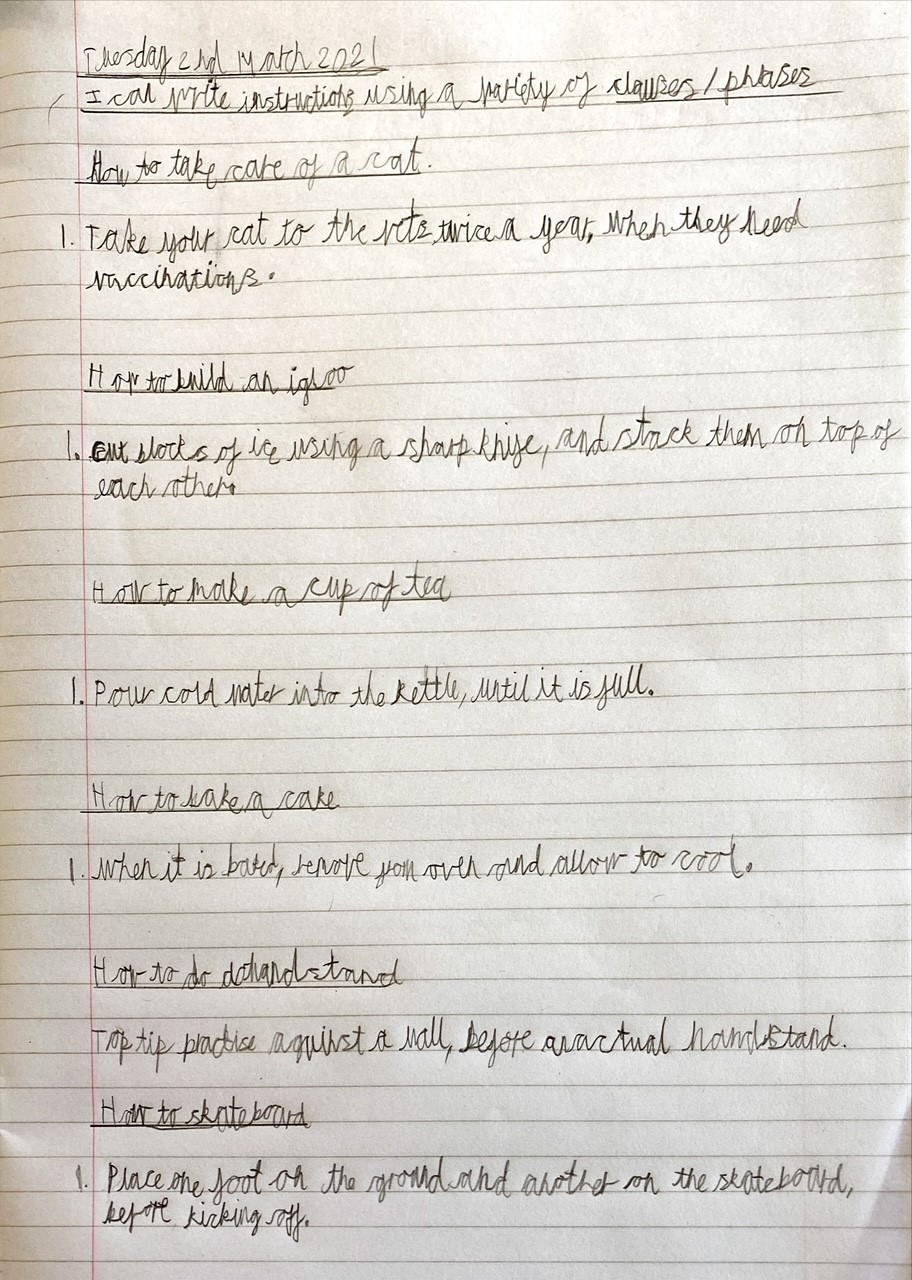 Tuesday 2nd March 2021
I can write instructions using a variety of clauses / phrases
How to take care of a cat.
1. Take your cat to the vets twice a year, when they need
vaccinations.
How to build an igloo
1. cut blocks of ice using a sharp knife, and stack them on top of
each other.
How to make a cup of tea
1. Pour cold water into the kettle, until it is full.
How to bake a cake
1. When it is baked, remove from oven and allow to cool.
How to do a handstand
Top tip practise against a wall, before an actual handstand.
How to skateboard
1. Place one foot on the ground and another on the skateboard,
before kicking off.